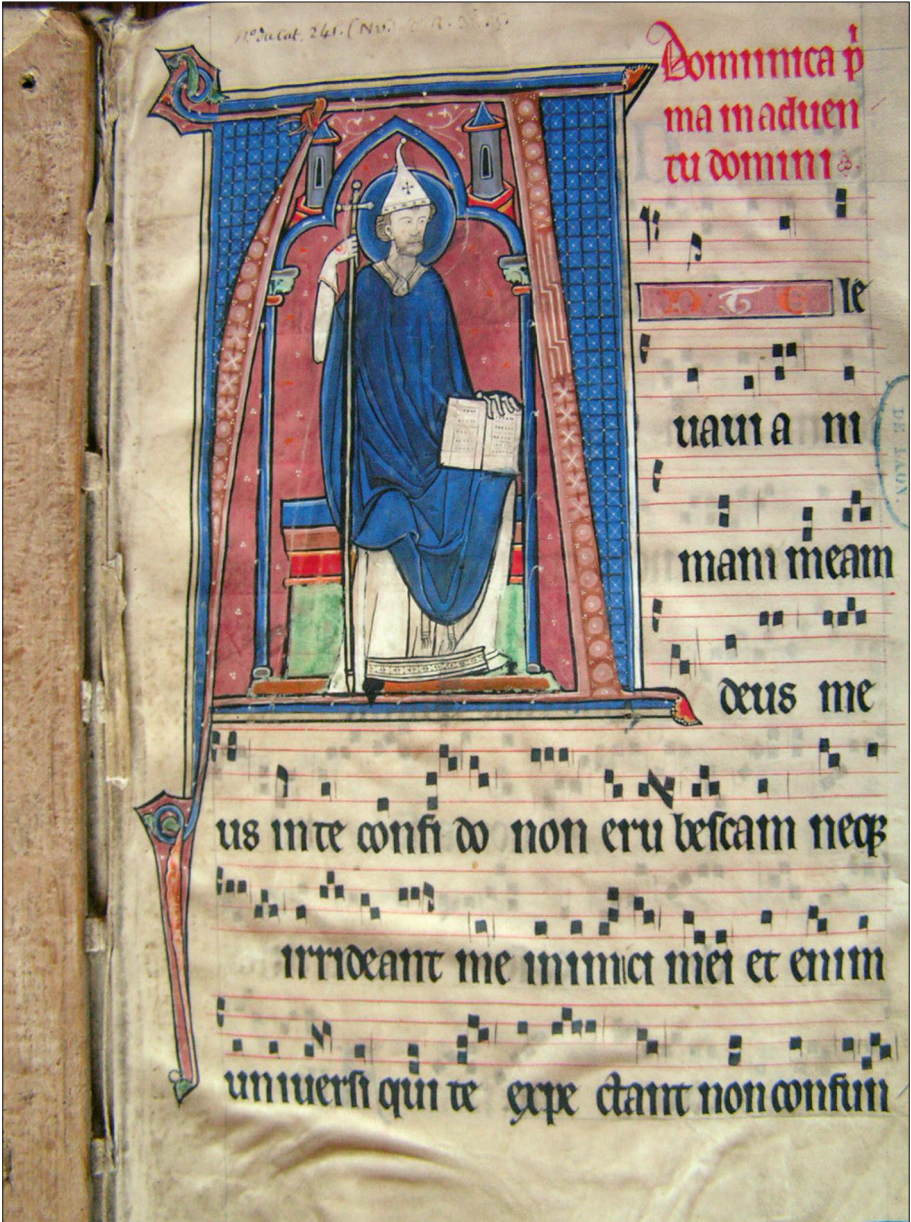 No du Cat. 241.
Dominica p̄
ma in aduen
tu domini
A
D T E le
uaui a ni
mam meam
deus me
us in te confi do non eru bescam neqꝫ
irrideant me inimici mei et enim
uniuersi qui te expe ctant non confun
DE LAON